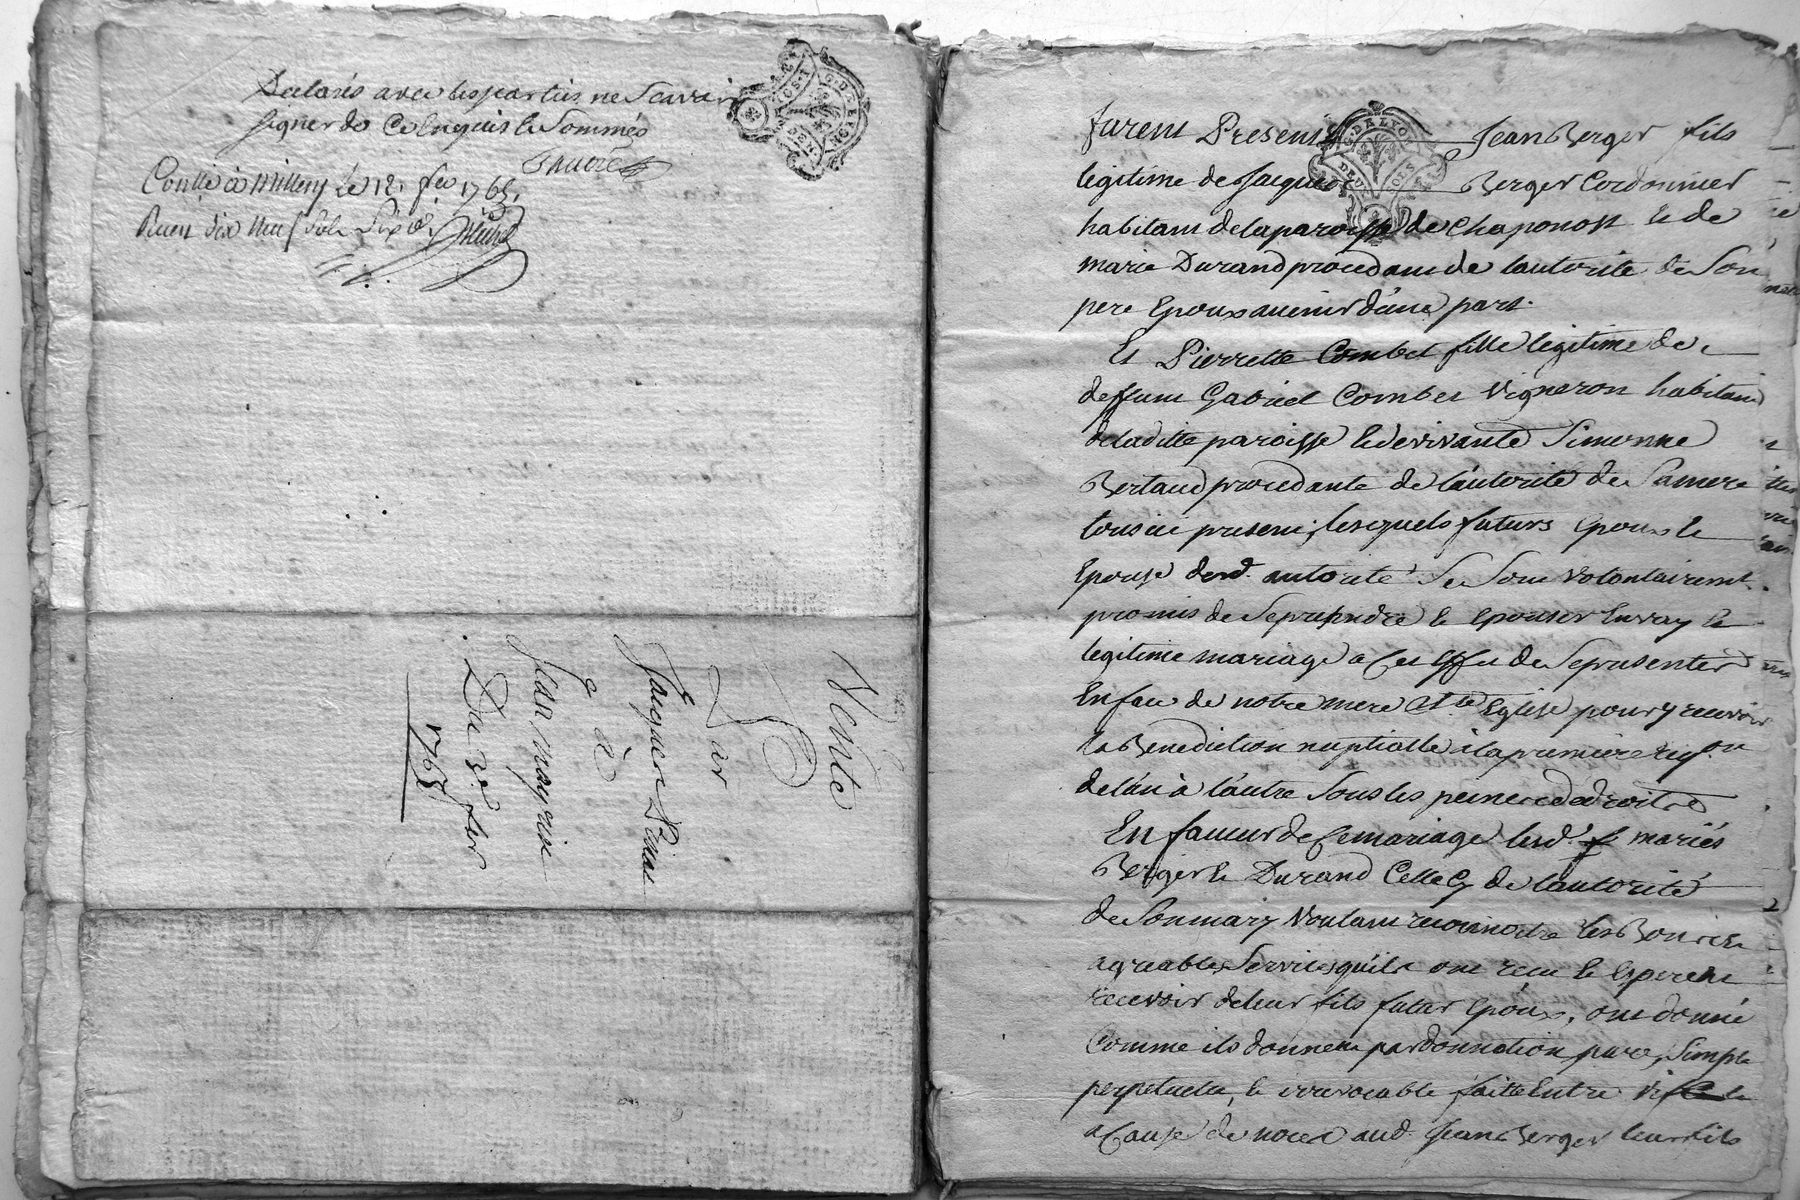 Declarés avec les parties ne Scavoir
signer de Ce Enquis & Sommés
Conllé à Millery Le 12. fev 1765.
Receu dix neuf sols Six d.
G. DE LYON
DEUX SOLS
Vente
Par
Jacques
à
Jean
Du 3e. fev
1765
furent Presents Jean Berger fils
legitime de Jacques Berger Cordonnier
habitant de la paroisse de Chaponost & de
marie Durand procedant de l'autorité de Son
pere Epoux avenir d'une part.
Et Pierrette Combet fille legitime de
deffunt Gabriel Combet Vigneron habitant
de laditte paroisse & de vivante Simonne
Bertaud procedante de l'autorité de Sa mere
tous ici present, lesquels futurs Epoux &
Epouse desd. autorité Se Sont volontairemt.
promis de Se prendre & Epouser En vray &
legitime mariage a Cet Effet de Se presenter
En face de notre mere Ste Eglise pour y recevoir
la Benediction nuptialle à la premiere reqon
de l'un à l'autre Sous les peines de droit
En faveur de Ce mariage lesd. mariés
Berger & Durand Celle Cy de l'autorité
de Son mary Voulant reconnoitre les Bons &
agreables Services qu'ils ont reçu & Esperent
recevoir de leur fils futur Epoux, ont donné
Comme ils donnent par donnation pure, Simple
perpetuelle, & irrevocable faitte Entre Vifs &
a Cause de noces aud. Jean Berger leur fils